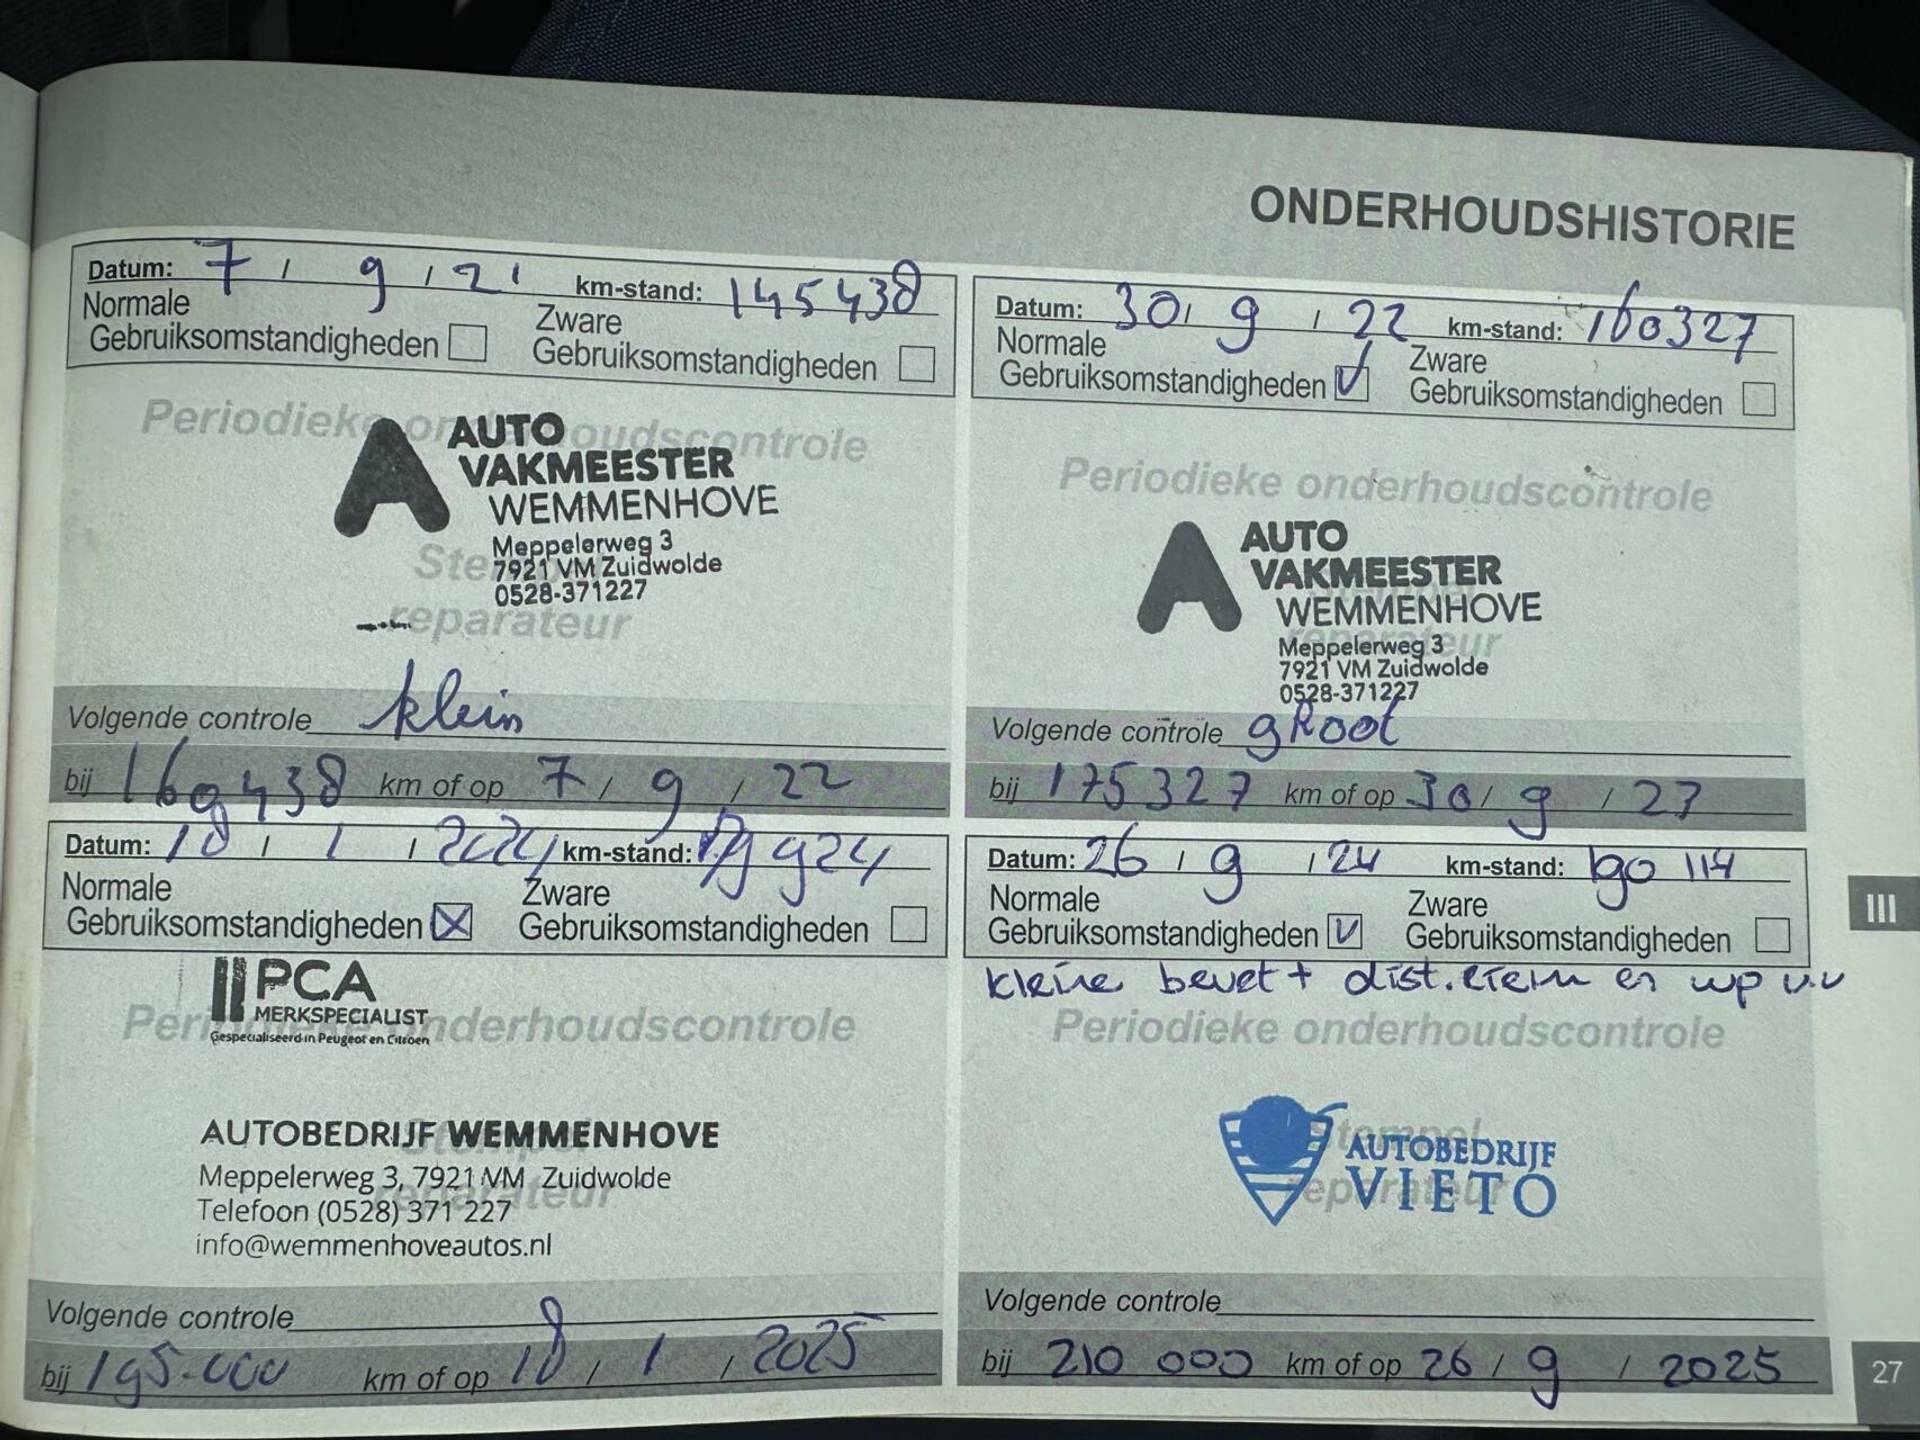 ONDERHOUDSHISTORIE
Datum: 7 / 9 / 21 km-stand: 145438
Normale Zware
Gebruiksomstandigheden Gebruiksomstandigheden
Periodieke onderhoudscontrole
AUTO
VAKMEESTER
WEMMENHOVE
Meppelerweg 3
7921 VM Zuidwolde
0528-371227
Stempel
reparateur
Volgende controle klein
bij 160438 km of op 7 / 9 / 22
Datum: 30 / 9 / 22 km-stand: 160327
Normale Zware
Gebruiksomstandigheden Gebruiksomstandigheden
Periodieke onderhoudscontrole
AUTO
VAKMEESTER
WEMMENHOVE
Meppelerweg 3
7921 VM Zuidwolde
0528-371227
reparateur
Volgende controle groot
bij 175327 km of op 30 / 9 / 23
Datum: 18 / 1 / 2024 km-stand:
Normale Zware
Gebruiksomstandigheden Gebruiksomstandigheden
PCA
MERKSPECIALIST
Gespecialiseerd in Peugeot en Citroen
Periodieke onderhoudscontrole
AUTOBEDRIJF WEMMENHOVE
Meppelerweg 3, 7921 VM Zuidwolde
Telefoon (0528) 371 227
info@wemmenhoveautos.nl
Stempel
reparateur
Volgende controle
bij 195.000 km of op 18 / 1 / 2025
Datum: 26 / 9 / 24 km-stand: 190 114
Normale Zware
Gebruiksomstandigheden Gebruiksomstandigheden
kleine beurt + dist. riem en wp v.v
Periodieke onderhoudscontrole
Stempel
AUTOBEDRIJF
VIETO
reparateur
Volgende controle
bij 210 000 km of op 26 / 9 / 2025
III
27